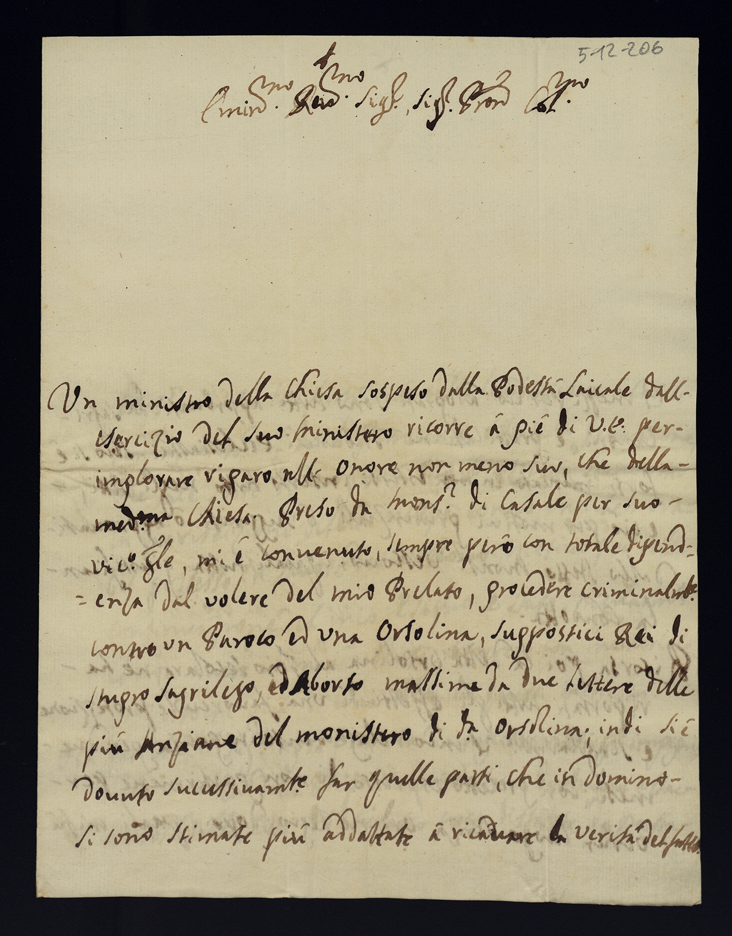 5-12-206
Emin.mo Rev.mo Sig.r, Sig.r Pron Col.mo
Un ministro della Chiesa sospeso dalla Podestà Laicale dall-
esercizio del suo Ministero ricorre à piè di V.E. per-
implorare riparo all Onore non meno suo, che della-
med.ma Chiesa. Preso da Mons.r di Casale per suo-
vic.o gle, mi è convenuto, sempre però con totale dipend-
=enza dal volere del mio Prelato, procedere criminalm.te
contro un Paroco ed una Orsolina, suppostici Rei di
stupro sagrilego, ed Aborto massime da due lettere delle
più Anziane del monistero di da Orsolina; indi si è
dovuto successivam.te far quelle parti, che in Domino-
si sono stimate più addattate à ricavare la verità del fatto.